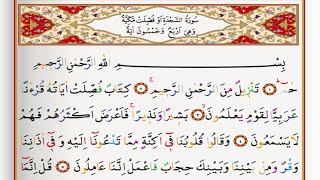 سُورَةُ السَّجْدَةِ أَوْ فُصِّلَتْ مَكِّيَّةٌ
وَهِيَ أَرْبَعٌ وَخَمْسُونَ آيَةً
بِسْمِ اللّٰهِ الرَّحْمٰنِ الرَّحٖيمِ
حٰمٓ ۝ تَنْزٖيلٌ مِنَ الرَّحْمٰنِ الرَّحٖيمِ ۝ كِتَابٌ فُصِّلَتْ اٰيَاتُهُ قُرْاٰنًا
عَرَبِيًّا لِقَوْمٍ يَعْلَمُونَ ۝ بَشٖيرًا وَنَذٖيرًا فَاَعْرَضَ اَكْثَرُهُمْ فَهُمْ
لَا يَسْمَعُونَ ۝ وَقَالُوا قُلُوبُنَا فٖٓي اَكِنَّةٍ مِمَّا تَدْعُونَٓا اِلَيْهِ وَفٖٓي اٰذَانِنَا
وَقْرٌ وَمِنْ بَيْنِنَا وَبَيْنِكَ حِجَابٌ فَاعْمَلْ اِنَّنَا عَامِلُونَ ۝ قُلْ اِنَّمَٓا